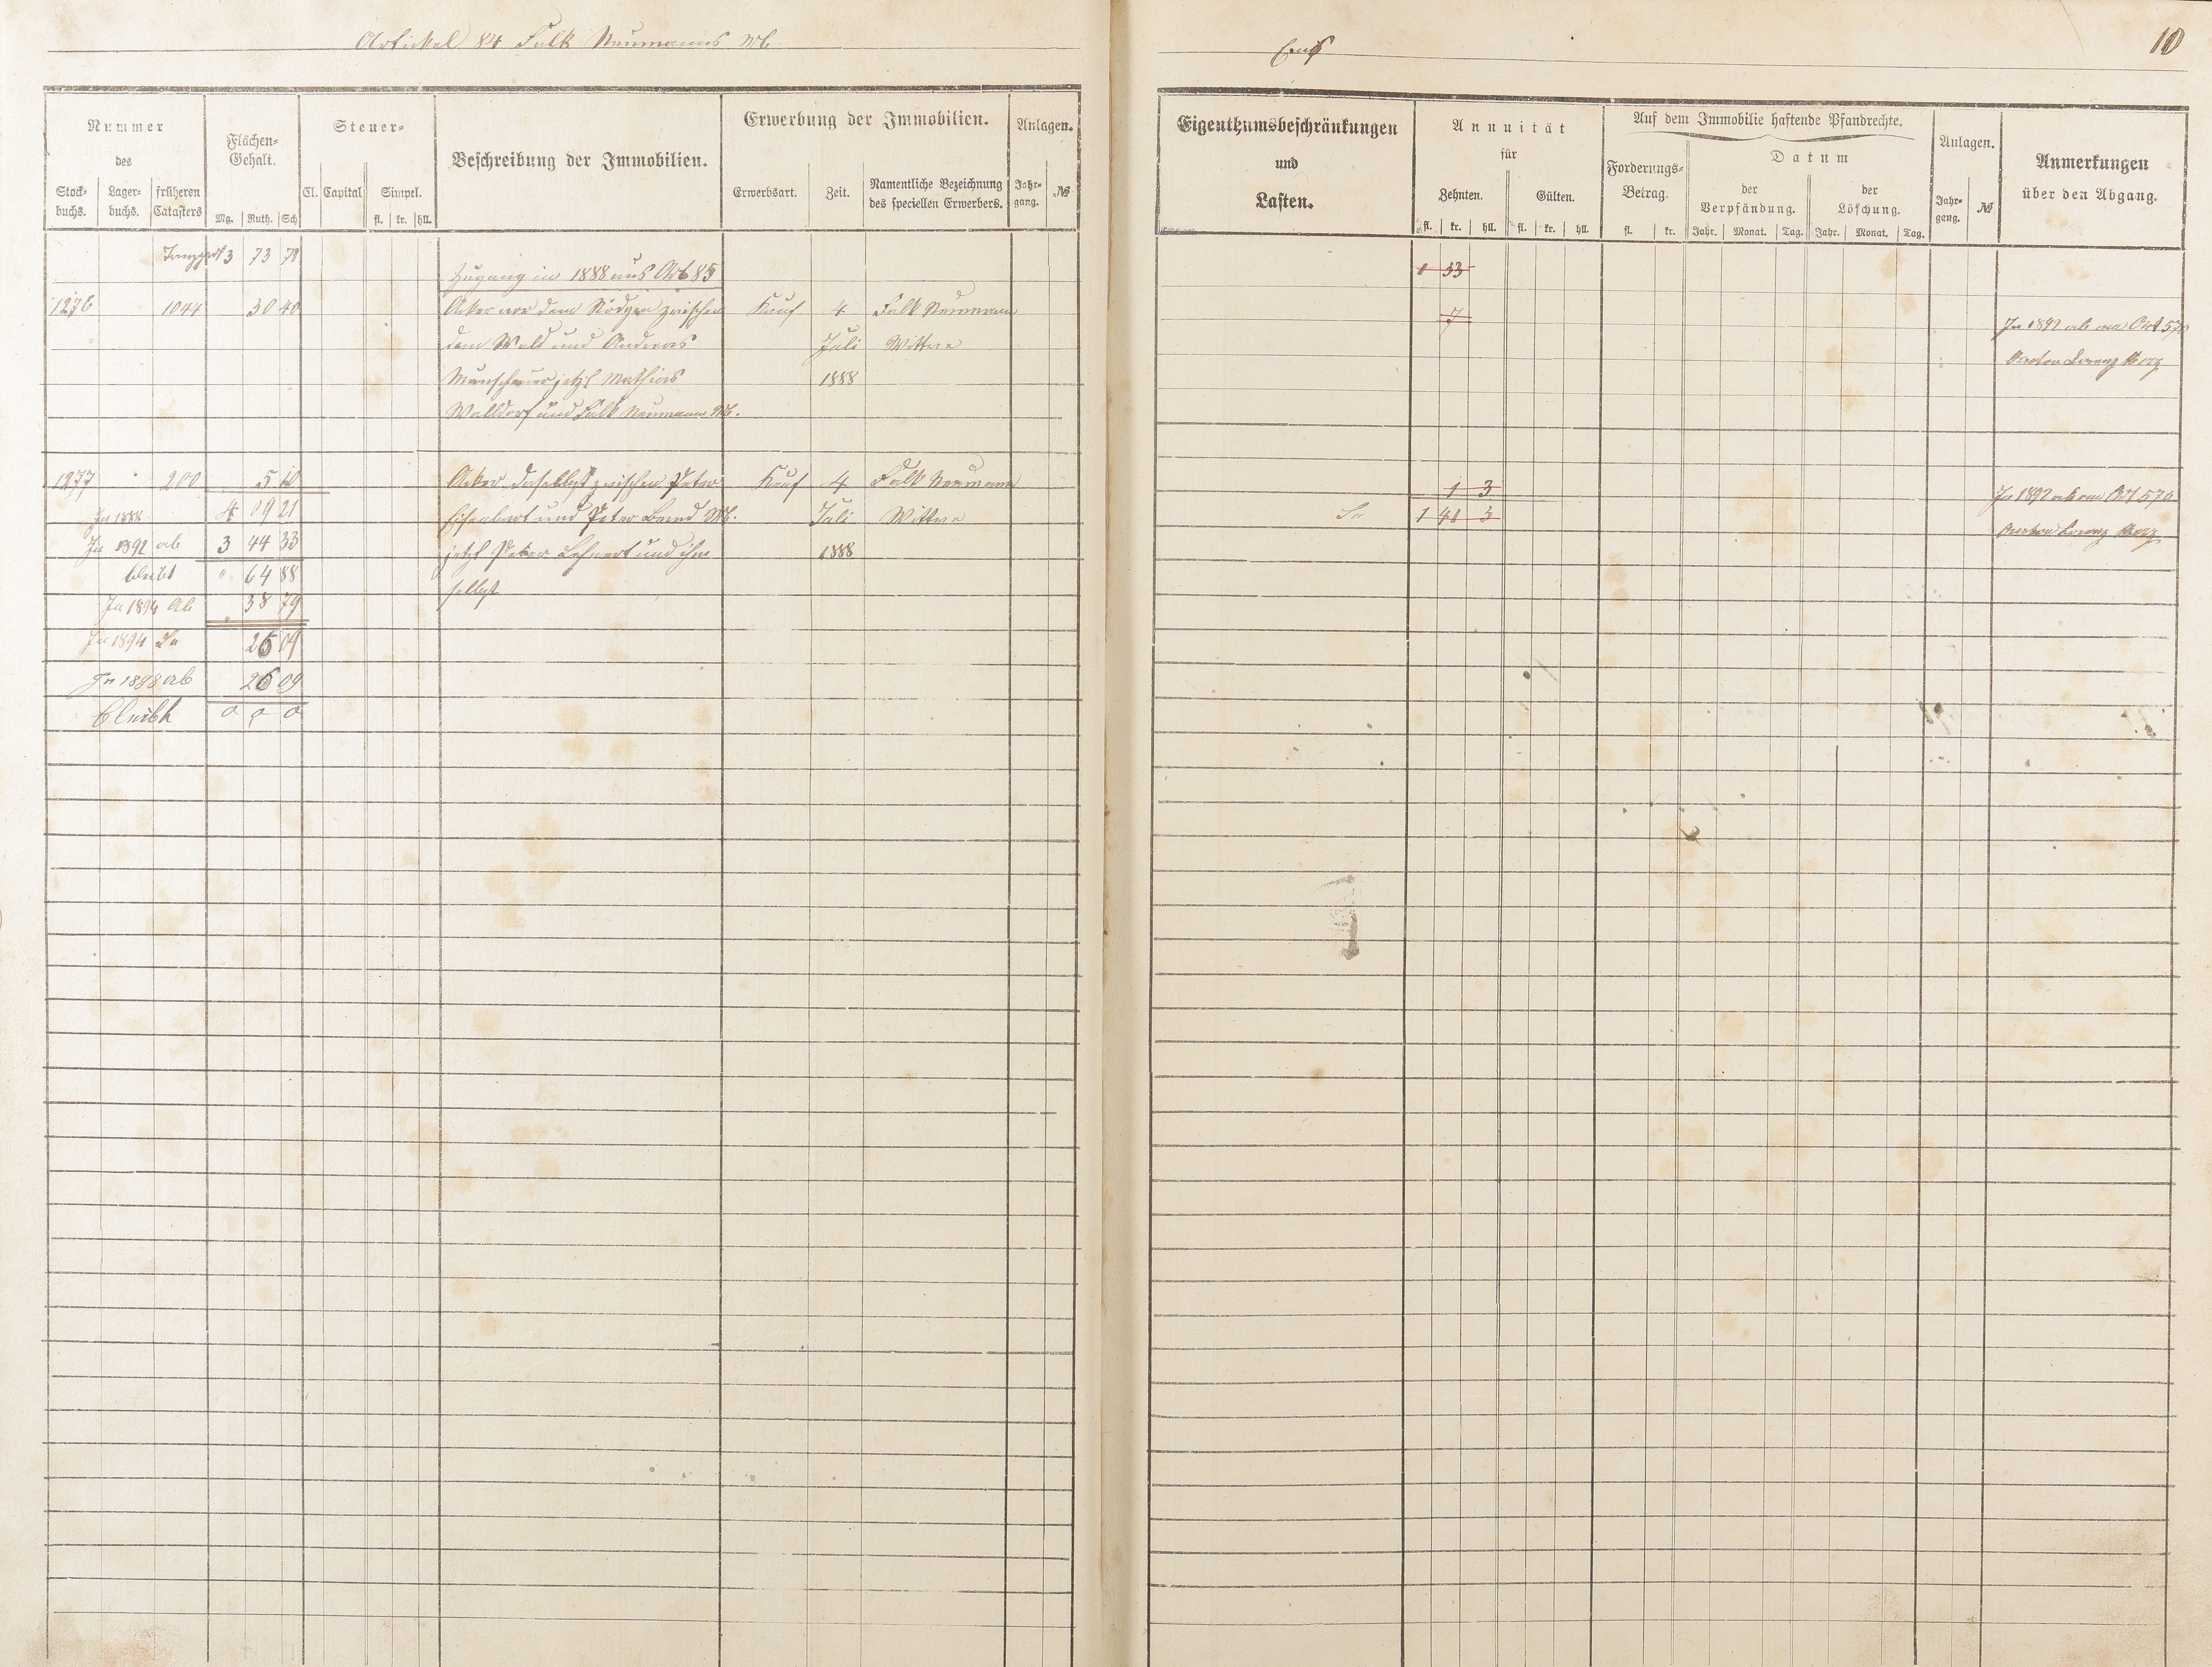 Artickel 84 Falk Neumanns Wb.
10
Nummer
des
Stock-
buchs.
Lager-
buchs.
früheren
Catasters
Flächen-
Gehalt.
Mg. Ruth. Sch
Steuer-
Cl. Capital Simpel.
fl. kr. hll.
Beschreibung der Immobilien.
Erwerbung der Immobilien.
Erwerbsart. Zeit.
Namentliche Bezeichnung
des speciellen Erwerbers.
Anlagen.
Jahr-
gang.
№
Eigenthumsbeschränkungen
und
Lasten.
Annuität
für
Zehnten. Gülten.
fl. kr. hll. fl. kr. hll.
Auf dem Immobilie haftende Pfandrechte.
Forderungs-
Betrag.
fl. kr.
Datum
der
Verpfändung.
der
Löschung.
Jahr. Monat. Tag. Jahr. Monat. Tag.
Anlagen.
Jahr-
gang.
№
Anmerkungen
über den Abgang.
Transport 3 73 71 1 33
Zugang in 1888 aus Art 85
1276 1044 30 40 Acker vor dem Rödgen zwischen Kauf 4 Falk Neumann 7 In 1892 ab an Art 570
dem Wald und Andreas Juli Wittwe Anton Lorenz
Münscheuer jetzt Mathias 1888
Walldorf und Falk Neumann Wb.
1277 200 5 10 Acker daselbst zwischen Peter Kauf 4 Falk Neumann 1 3 In 1892 ab an Art 570
In 1888 4 09 21 und Peter Wb. Juli Wittwe Sa 1 41 3 Anton Lorenz
In 1892 ab 3 44 33 jetzt Peter Lehnert und ihm 1888
bleibt " 64 88 selbst
In 1894 Ab 38 79
In 1894 Sa 26 09
In 1898 ab 26 09
bleibt 0 0 0